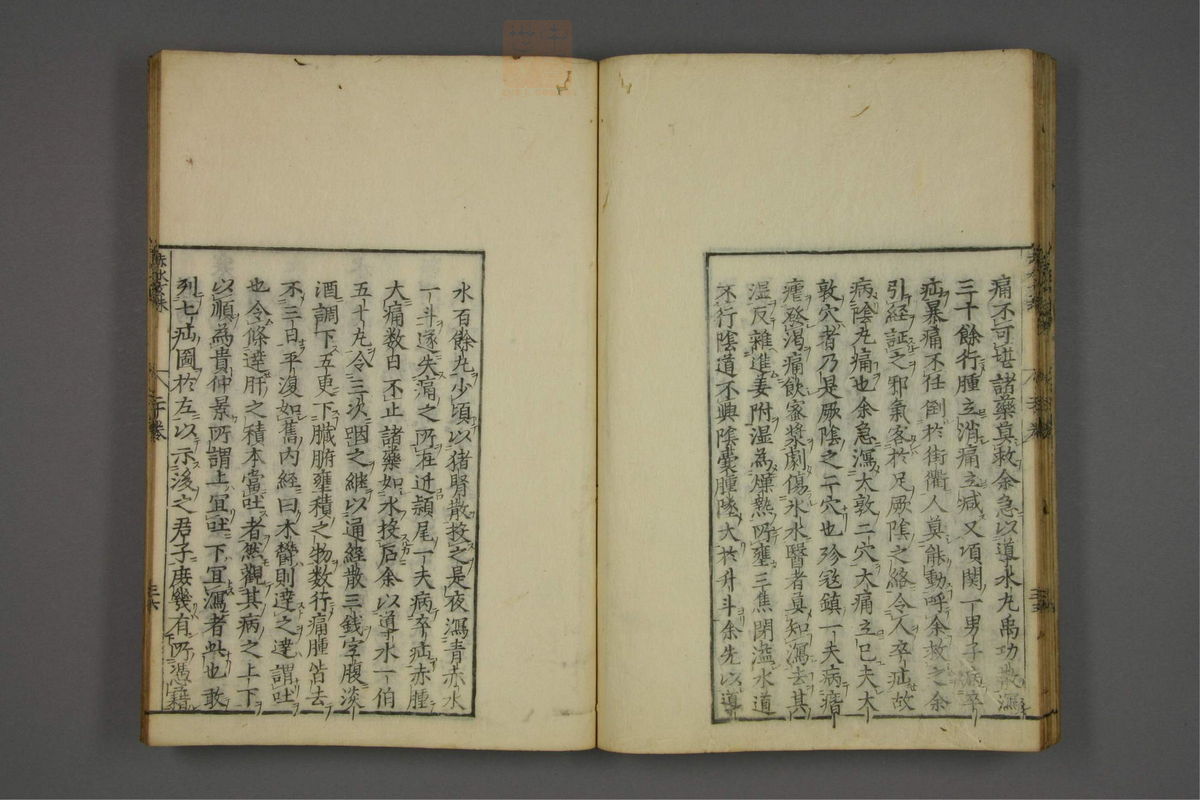 痛不可堪諸藥莫救余急以導水丸禹功散瀉
三十餘行腫立消痛立减又項関一男子病卒
疝暴痛不任倒於街衢人莫能動呼余救之余
引經証之邪氣客於足厥陰之絡令人卒疝故
病陰丸痛也余急瀉大敦二穴大痛立已夫大
敦穴者乃是厥陰之二穴也殄冦鎮一夫病㾬
瘧發渴痛飲蜜漿劇傷氷水醫者莫知瀉去其
湿反雜進姜附湿為燥熱所壅三焦閉溢水道
不行陰道不興陰囊腫墜大於升斗余先以導
水百餘丸少頃以猪腎散投之是夜瀉青赤水
一斗遂失痛之所在近頴尾一夫病卒疝赤腫
大痛数日不止諸藥如水投石余以導水一伯
五十丸令三次咽之継以通経散三銭字腹淡
酒調下五更下臓腑壅積之物数行痛腫皆去
不三日平復如舊内経曰木鬱則達之達謂吐
也令條達肝之積本當吐者然觀其病之上下
以順為貴仲景所謂上冝吐下冝瀉者此也敢
列七疝圖於左以示後之君子庻幾有所憑藉
二十卷
三六